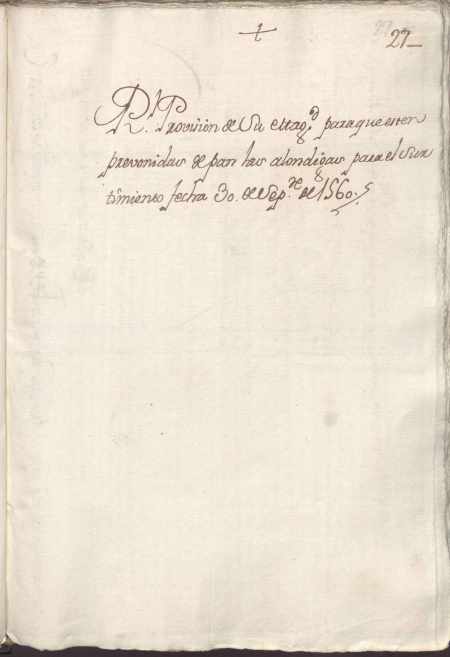 27
R.l Provision de Su Mag.d para que esten
prevenidas de pan las alondigas para el Sur
timiento fecha 30. de Sep.re de 1560.